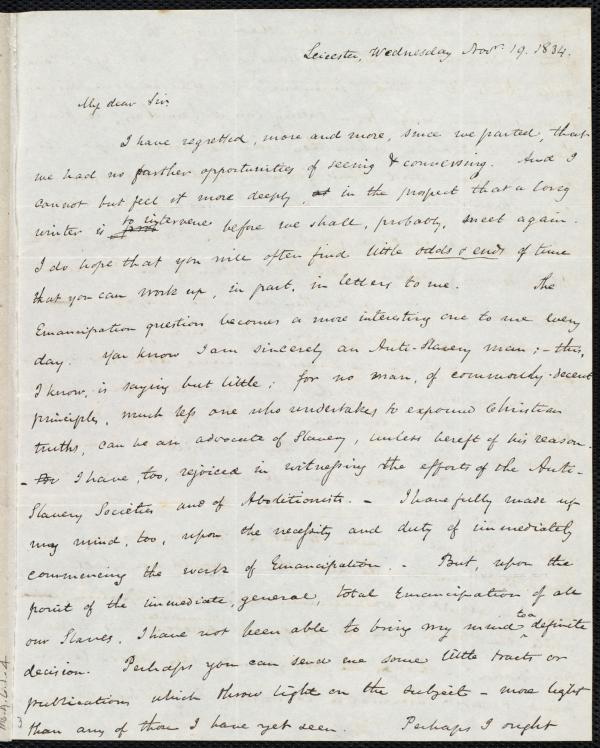 Leicester, Wednesday Novr. 19. 1834.
My dear Sir,
I have regretted, more and more, since we parted, that
we had no farther opportunities of seeing & conversing. And I
cannot but feel it more deeply, in the prospect that a long
winter is to intervene before we shall, probably, meet again.
I do hope that you will often find little odds & ends of time
that you can work up, in part, in letters to me. The
Emancipation question becomes a more interesting one to me every
day. You know I am sincerely an Anti-Slavery man; - this,
I know, is saying but little; for no man, of commonly-decent
principles, much less one who undertakes to expound Christian
truths, can be an advocate of Slavery, unless bereft of his reason.
- I have, too, rejoiced in witnessing the efforts of the Anti-
Slavery Societies and of Abolitionists. - I have fully made up
my mind, too, upon the necessity and duty of immediately
commencing the work of Emancipation. - But, upon the
point of the immediate, general, total Emancipation of all
our Slaves, I have not been able to bring my mind to a definite
decision. Perhaps you can send me some little tracts or
publications which throw light on the subject - more light
than any of those I have yet seen. Perhaps I ought